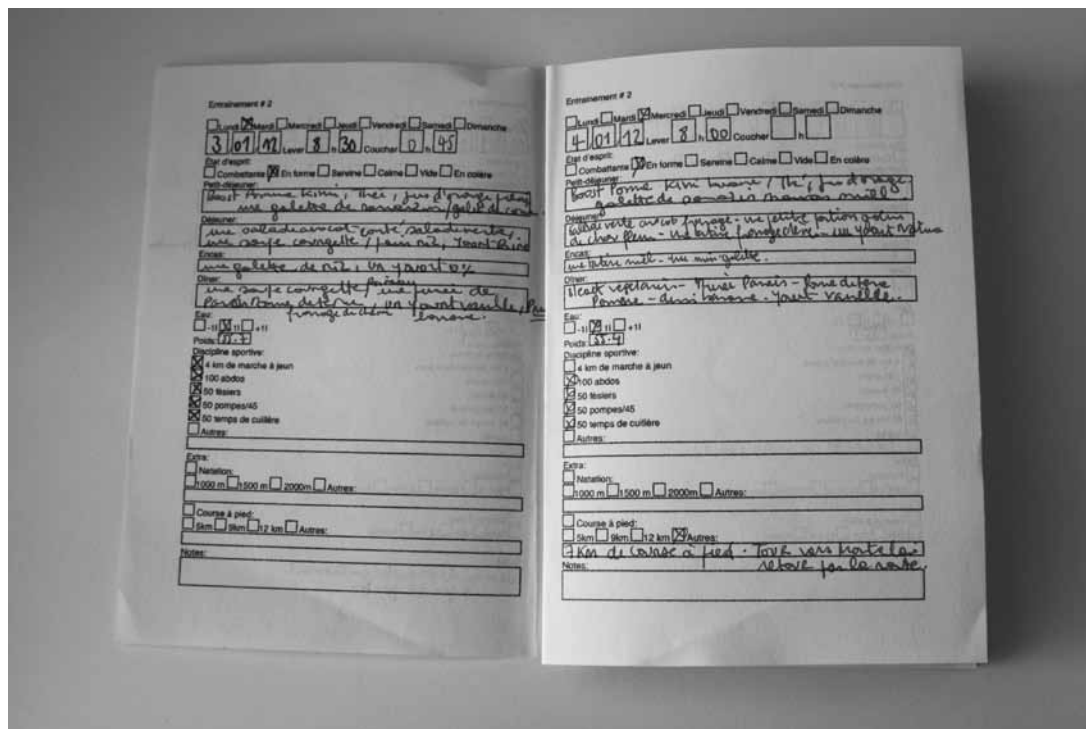 Entrainement # 2
Lundi Mardi Mercredi Jeudi Vendredi Samedi Dimanche
3 01 12 Lever 8 h 30 Coucher 0 h 45
État d'esprit:
Combattante En forme Sereine Calme Vide En colère
Petit-déjeuner:
Boost Pomme Kiwi, Thé, jus d'orange
une galette de
Déjeuner:
une salade avocat-comté, salade verte,
une soupe courgette / pain riz, Yaourt
Encas:
une galette de riz, un yaourt 0%
Dîner:
une soupe courgette / poireau une purée de
Panais pomme de terre, un yaourt vanille,
fromage de chèvre banane.
Eau:
-1l 1l +1l
Poids: 55.7
Discipline sportive:
4 km de marche à jeun
100 abdos
50 fésiers
50 pompes/45
50 temps de cuillère
Autres:
Extra:
Natation:
1000 m 1500 m 2000m Autres:
Course à pied:
5km 9km 12 km Autres:
Notes:
Entrainement # 2
Lundi Mardi Mercredi Jeudi Vendredi Samedi Dimanche
4 01 12 Lever 8 h 00 Coucher h
État d'esprit:
Combattante En forme Sereine Calme Vide En colère
Petit-déjeuner:
Boost Pomme Kiwi banane / Thé, jus d'orange
galette de miel.
Déjeuner:
salade verte avocat fromage - une petite portion gratin
de chou fleur - une tartine fromage chèvre - un yaourt nature
Encas:
une tartine miel - une mini galette.
Dîner:
Steack végétarien - Purée Panais - Pomme de terre
- demi banane. Yaourt Vanille.
Eau:
-1l 1l +1l
Poids: 55.4
Discipline sportive:
4 km de marche à jeun
100 abdos
50 fésiers
50 pompes/45
50 temps de cuillère
Autres:
Extra:
Natation:
1000 m 1500 m 2000m Autres:
Course à pied:
5km 9km 12 km Autres:
7 Km de course à pied - Tour vers
retour par la route.
Notes: